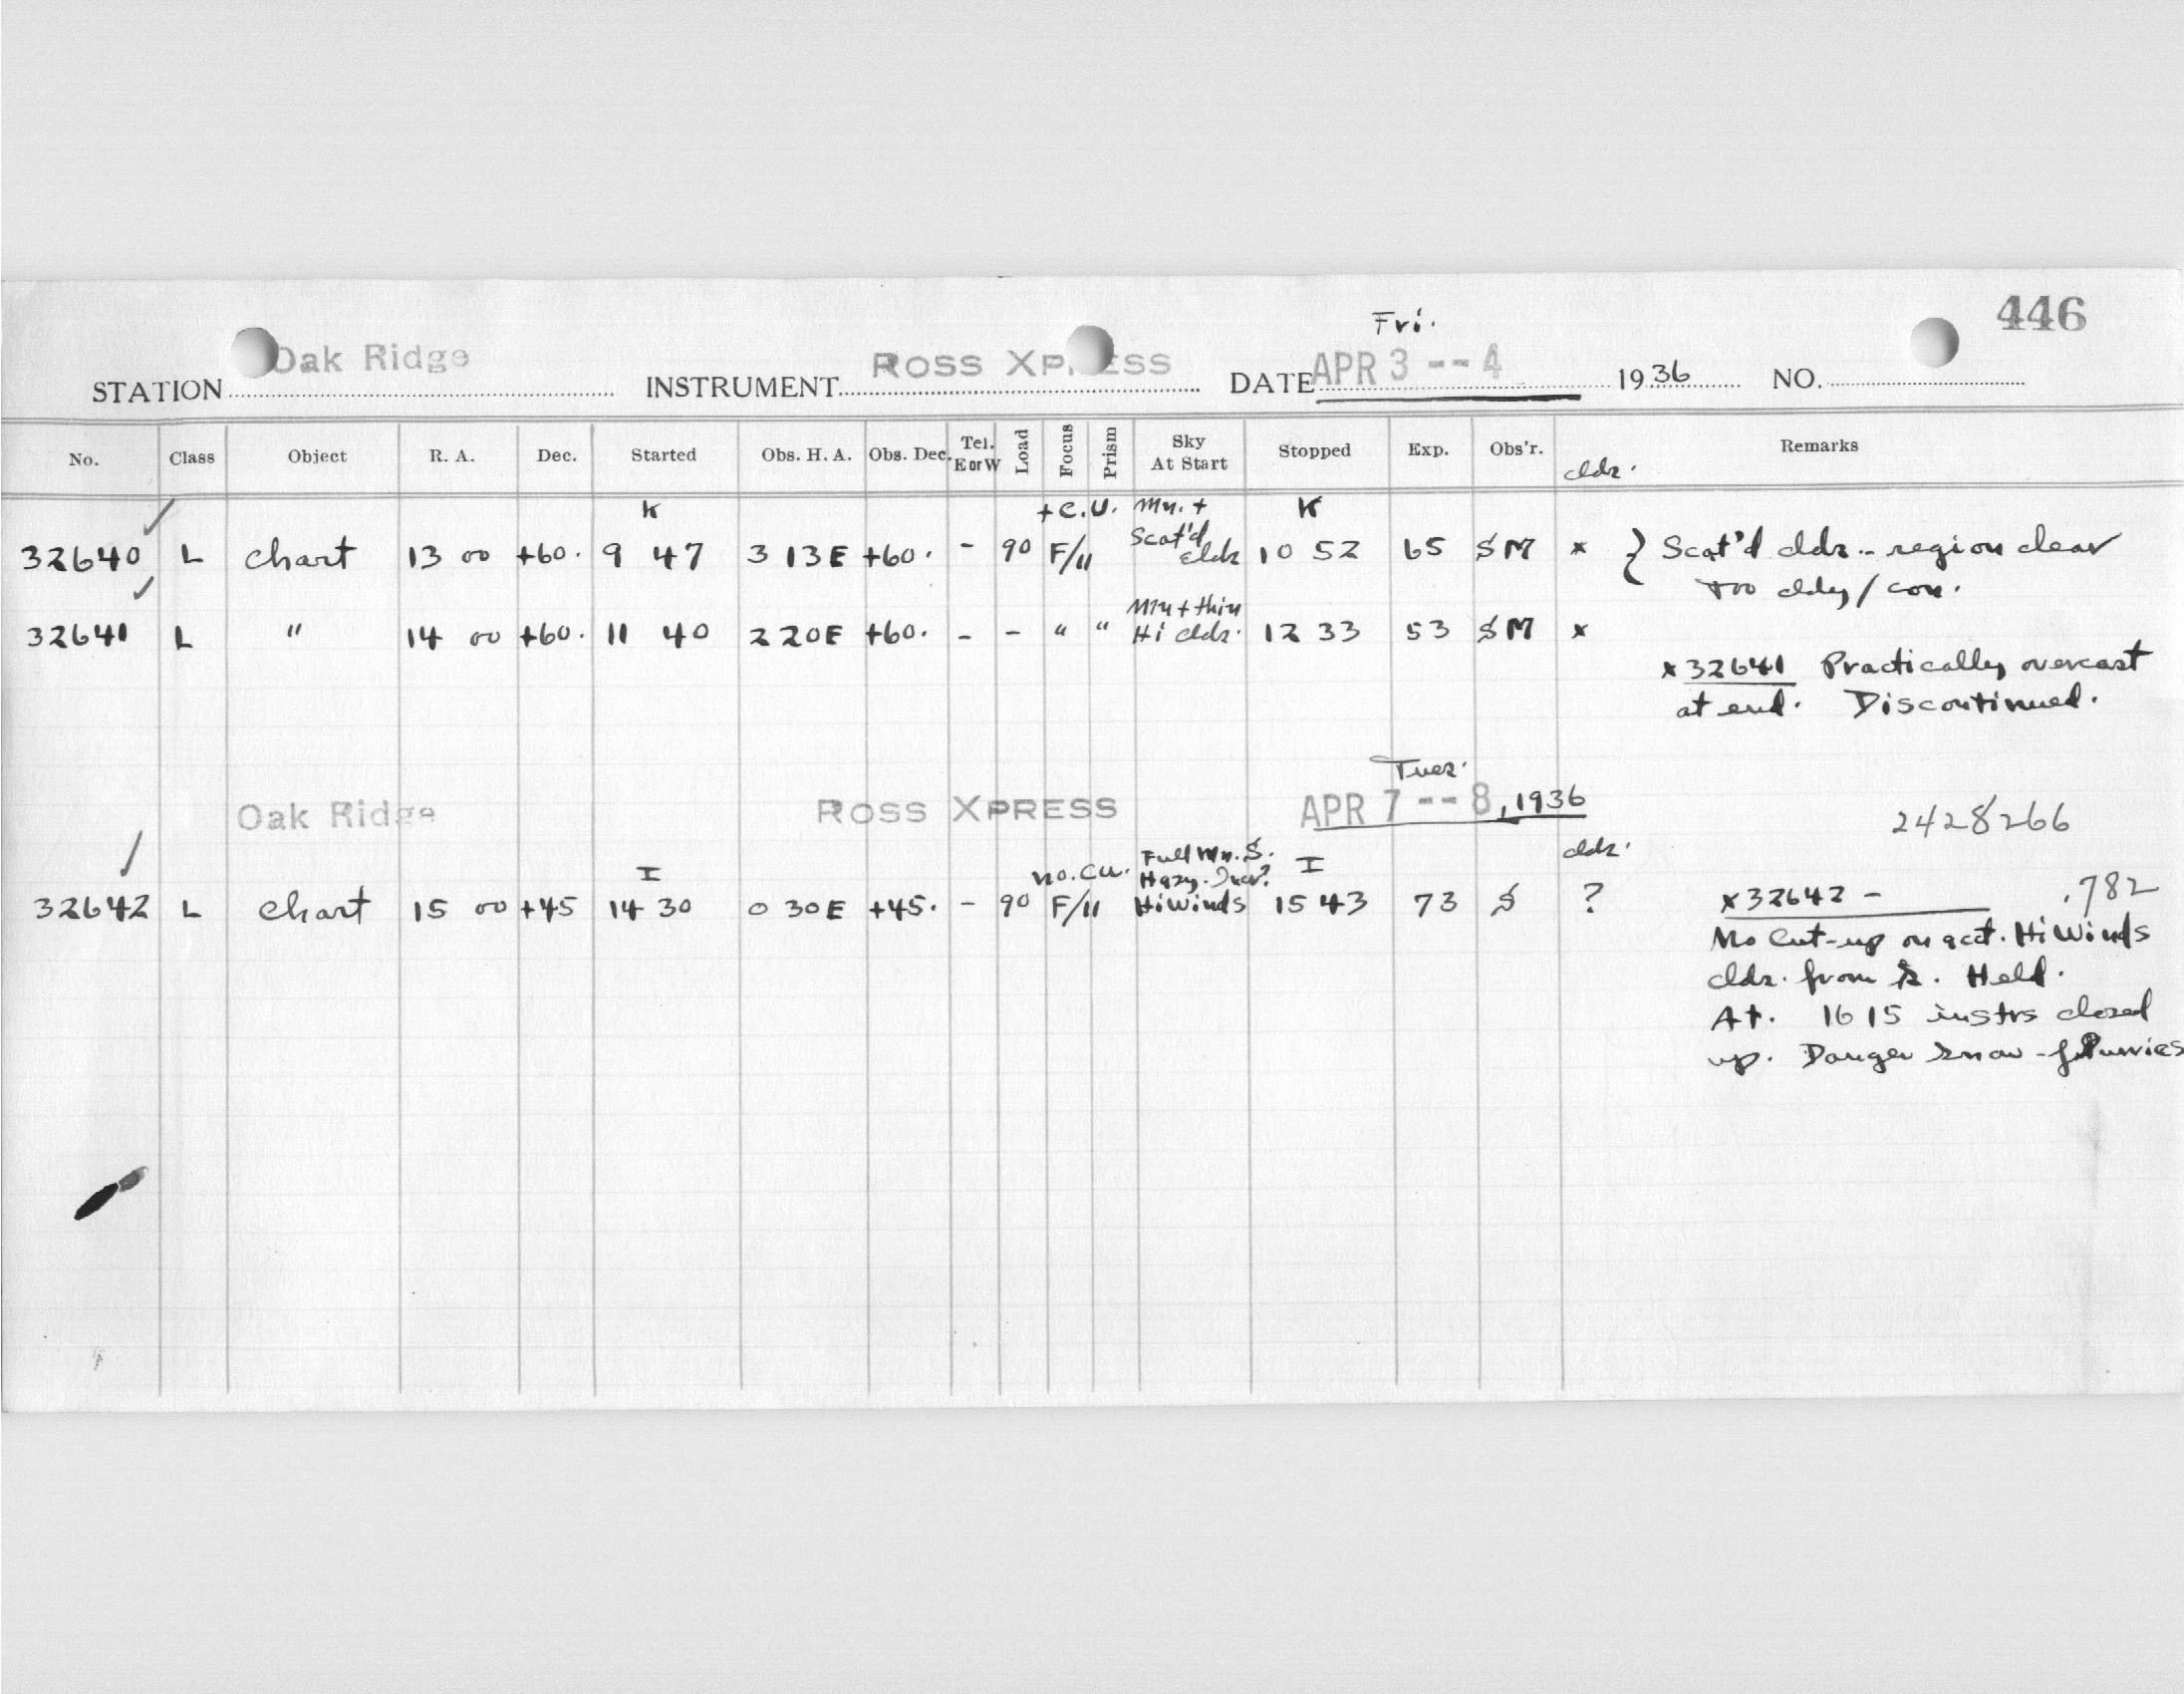 446
Fri.
STATION Oak Ridge INSTRUMENT ROSS XPRESS DATE APR 3 -- 4 1936 NO.
No. Class Object R. A. Dec. Started Obs. H. A. Obs. Dec. Tel. E or W Load Focus Prism Sky At Start Stopped Exp. Obs'r. cldz. Remarks
K + C.U. Mn. + K
32640 L chart 13 00 +60. 9 47 3 13E +60. - 90 F/11 Scat'd cldz 10 52 65 SM x } Scat'd cldz -- region clear
too cldy / con.
Mn + thin
32641 L " 14 00 +60. 11 40 2 20E +60. - - " " Hi cldz. 12 33 53 SM x
x 32641 Practically overcast
at end. Discontinued.
Tues.
Oak Ridge ROSS XPRESS APR 7 -- 8, 1936 2428266
Full Mn. S. cldz.
I no. cu. Hazy. I
32642 L chart 15 00 +45 14 30 0 30E +45. - 90 F/11 Hi Winds 15 43 73 S ? x 32642 - .782
No Cut-up on acct. Hi Winds
cldz. from Held.
At. 16 15 instrs closed
up. Danger snow - flurries